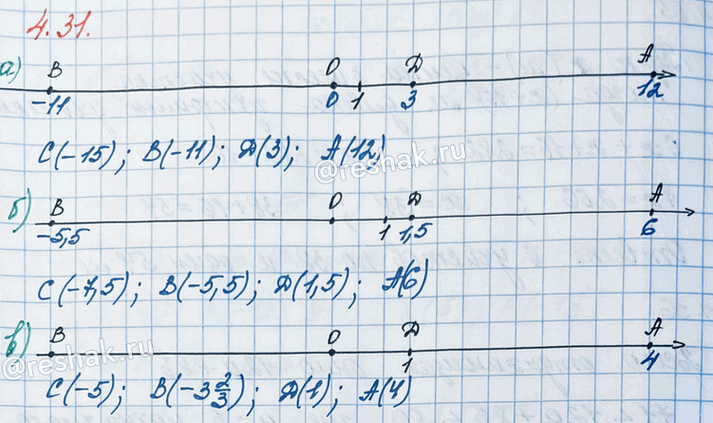 4.31.
а) B O Д A
-11 0 1 3 12
C(-15); B(-11); Д(3); A(12)
@reshak.ru
б) B O Д A
-5,5 1 1,5 6
C(-7,5); B(-5,5); Д(1,5); A(6)
в) B O Д A
1 4
@reshak.ru
C(-5); B(-3 2/3); Д(1); A(4)